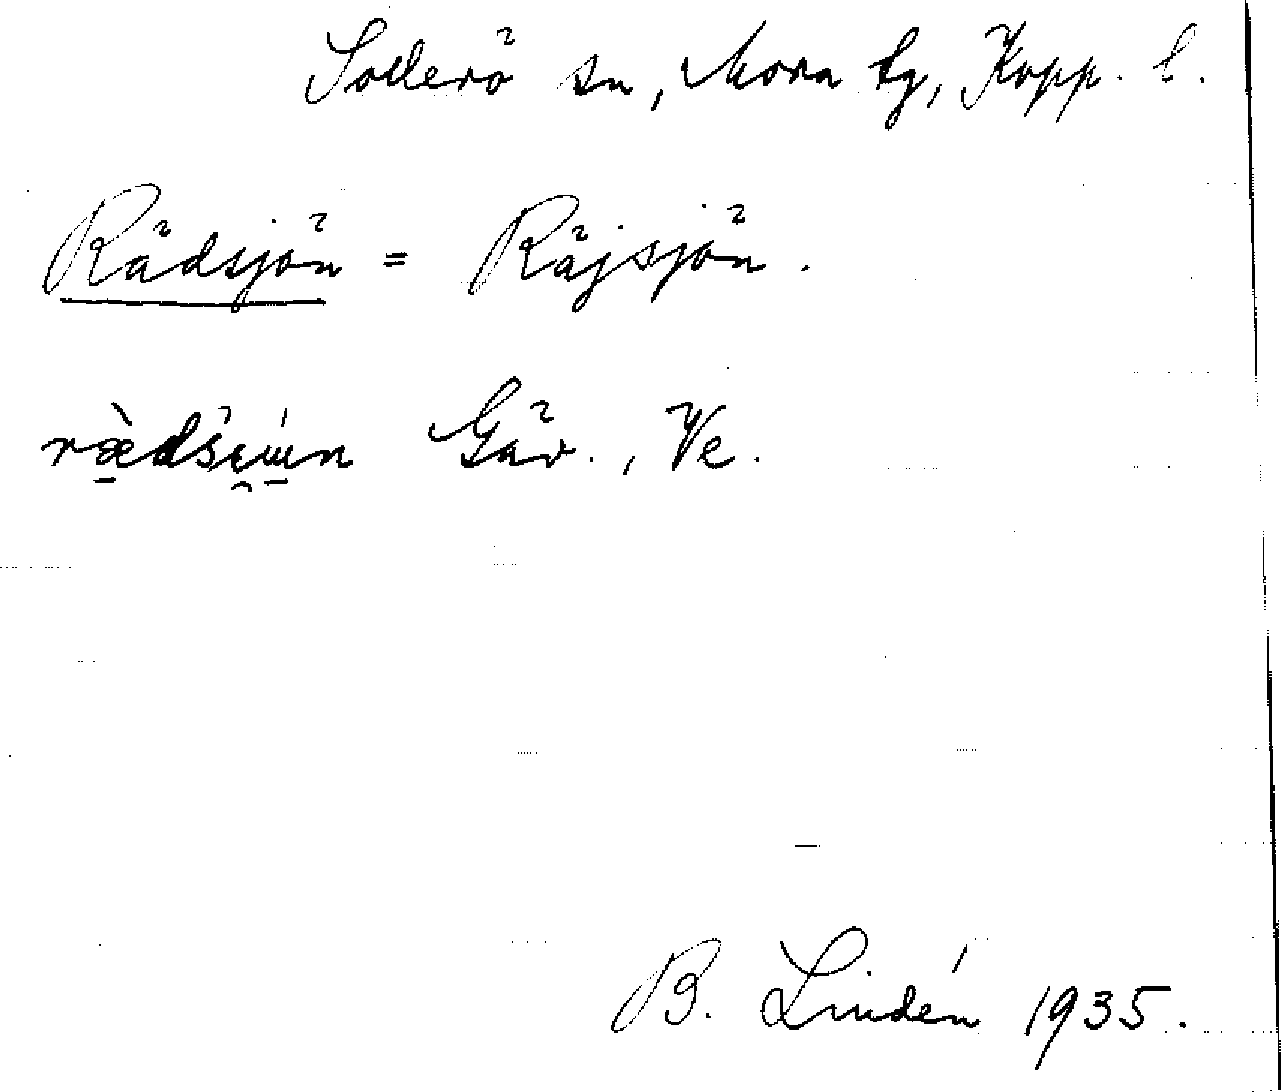 Sollerö sn, Mora tg, Kopp. l.
Rädsjön = Räjsjön.
Gäv., Ve.
B. Lindén 1935.